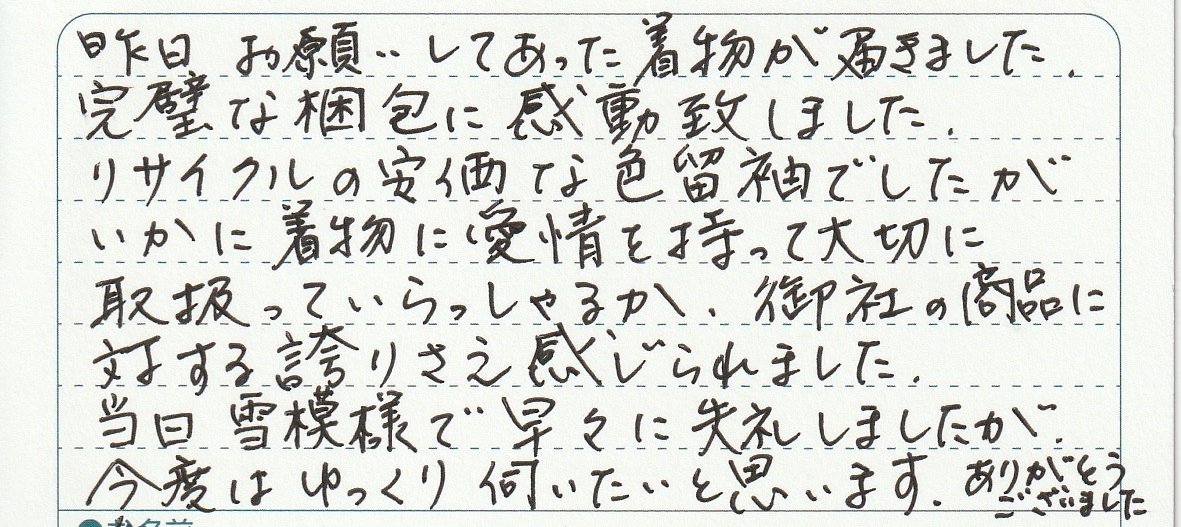 昨日 お願いしてあった着物が届きました.
完璧な梱包に感動致しました.
リサイクルの安価な色留袖でしたが
いかに着物に愛情を持って大切に
取扱っていらっしゃるか、御社の商品に
対する誇りさえ感じられました.
当日雪模様で早々に失礼しましたが、
今度はゆっくり伺いたいと思います. ありがとう
ございました